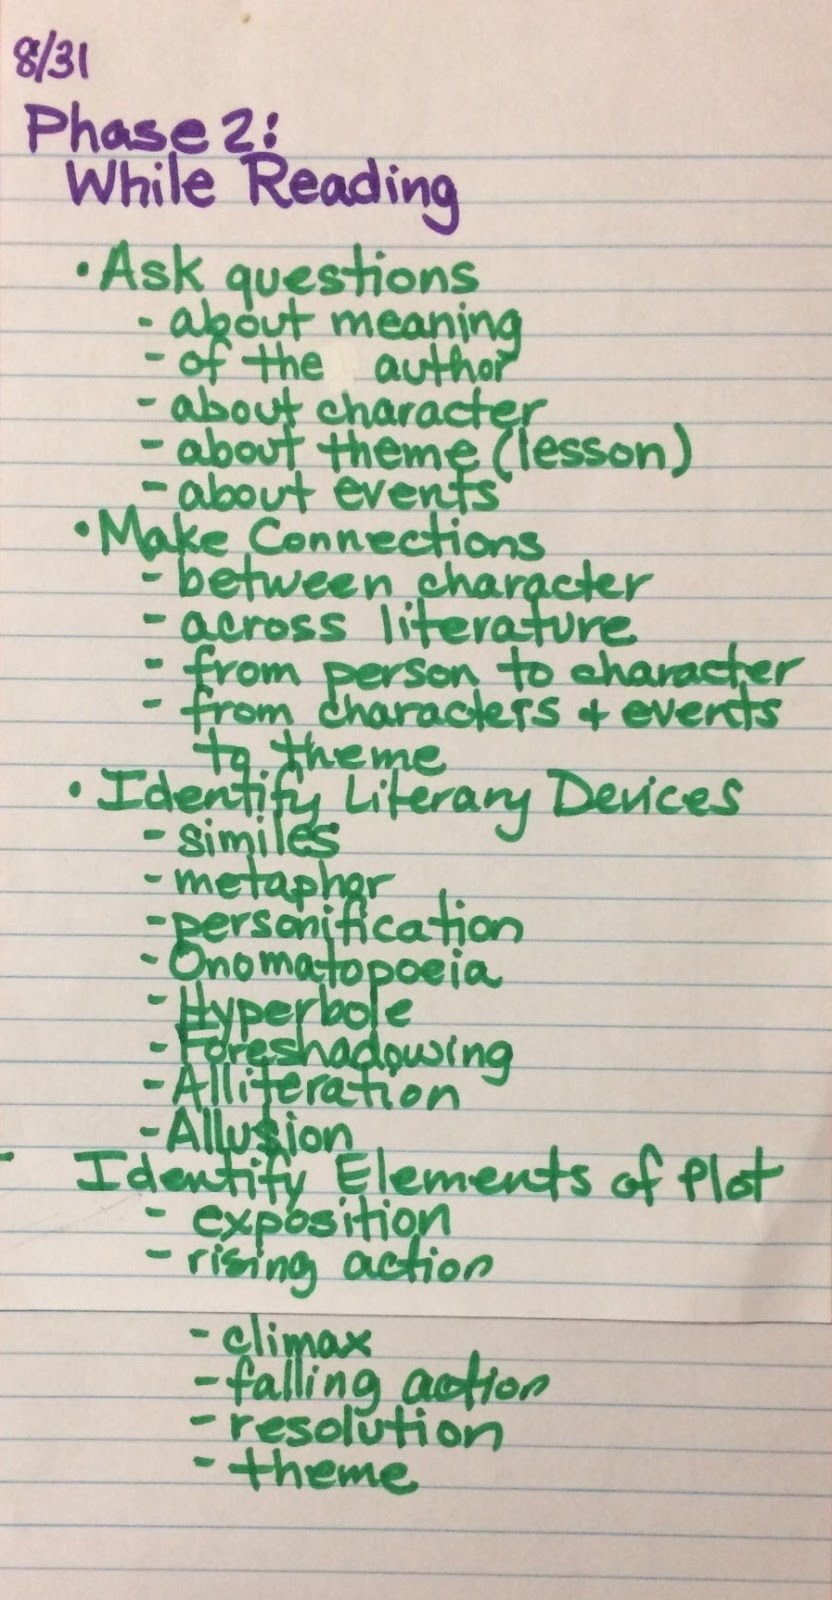 8/31
Phase 2:
While Reading
• Ask questions
- about meaning
- of the author
- about character
- about theme (lesson)
- about events
• Make Connections
- between character
- across literature
- from person to character
- from characters + events
to theme
• Identify Literary Devices
- similes
- metaphor
- personification
- Onomatopoeia
- Hyperbole
- Foreshadowing
- Alliteration
- Allusion
- Identify Elements of Plot
- exposition
- rising action
- climax
- falling action
- resolution
- theme